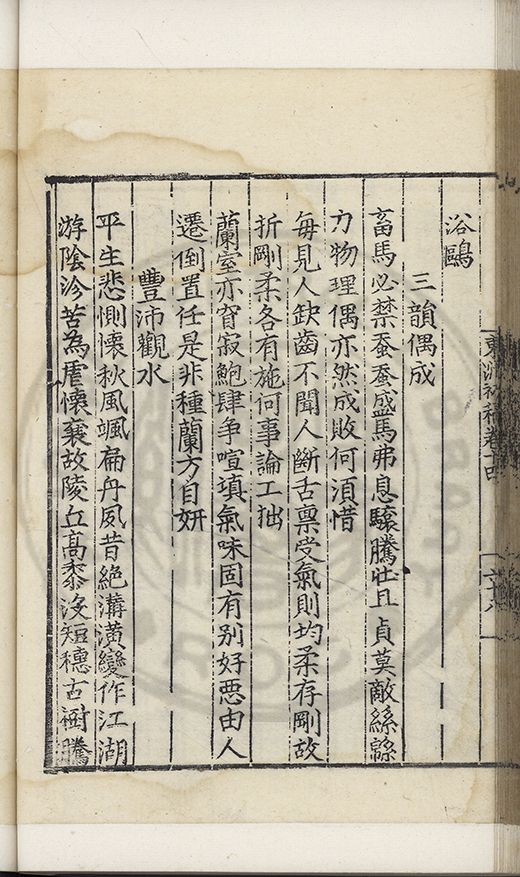 浴鷗
三韻偶成
畜馬必禁蚕蚕盛馬弗息驤騰壯且貞莫敵絲緜
力物理偶亦然成敗何須惜
每見人缺齒不聞人斷舌禀受氣則均柔存剛故
折剛柔各有施何事論工拙
蘭室亦育寂鮑肆争喧填氣味固有别好惡由人
遷倒置任是非種蘭方自妍
豐沛觀水
平生悲惻懷秋風颯扁舟夙昔絶溝潢變作江湖
游陰沴苦為虐懷襄故陵丘髙黍没短穗古樹騰